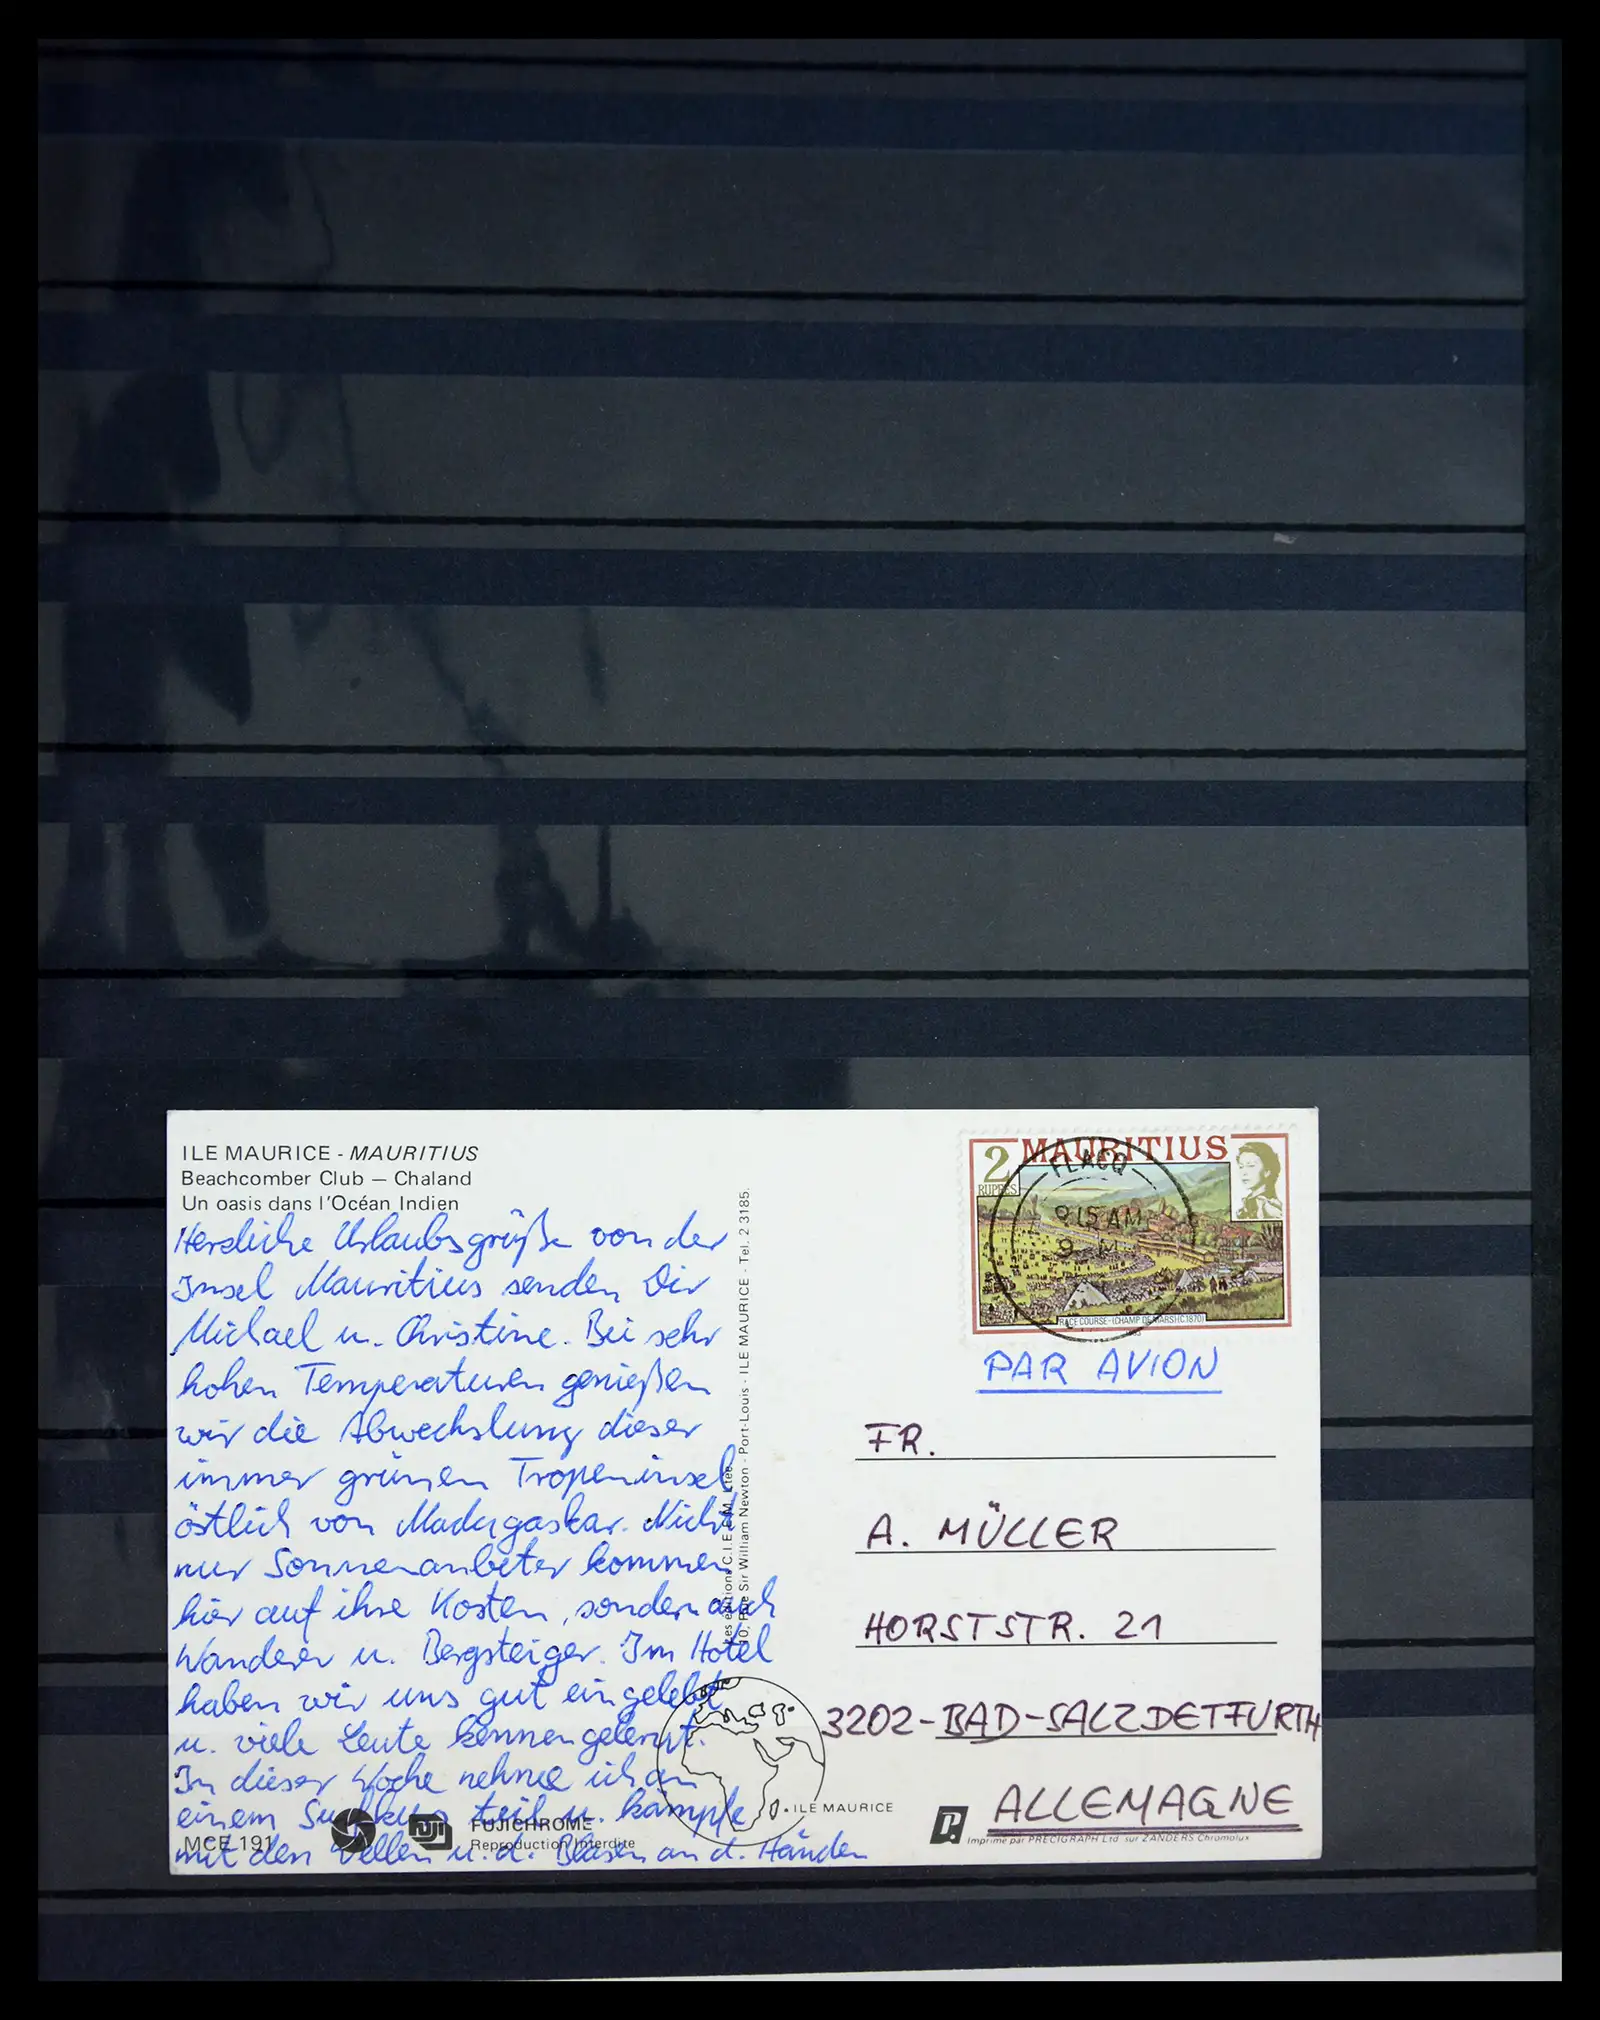 ILE MAURICE - MAURITIUS
Beachcomber Club — Chaland
Un oasis dans l'Océan Indien
Herzliche Urlaubsgrüße von der
Insel Mauritius senden Dir
Michael u. Christine. Bei sehr
hohen Temperaturen genießen
wir die Abwechslung dieser
immer grünen Tropeninsel
östlich von Madagaskar. Nicht
nur Sonnenanbeter kommen
hier auf ihre Kosten, sondern auch
Wanderer u. Bergsteiger. Im Hotel
haben wir uns gut eingelebt
u. viele Leute kennengelernt.
In dieser Woche nehme ich an
einem teil u. kämpfe
mit den Wellen u. d. Blasen an d. Händen
MCE 191
FUJI
FUJICHROME
Reproduction Interdite
Les éditions C.I.E.
10, Rue Sir William Newton - Port-Louis - ILE MAURICE - Tel. 2 3185.
ILE MAURICE
2 MAURITIUS
RUPEES
RACE COURSE-(CHAMP DE MARS) (C1870)
FLACQ
9 15 AM
9
PAR AVION
FR.
A. MÜLLER
HORSTSTR. 21
3202-BAD-SALZDETFURTH
ALLEMAGNE
Imprimé par PRECIGRAPH Ltd sur ZANDERS Chromolux